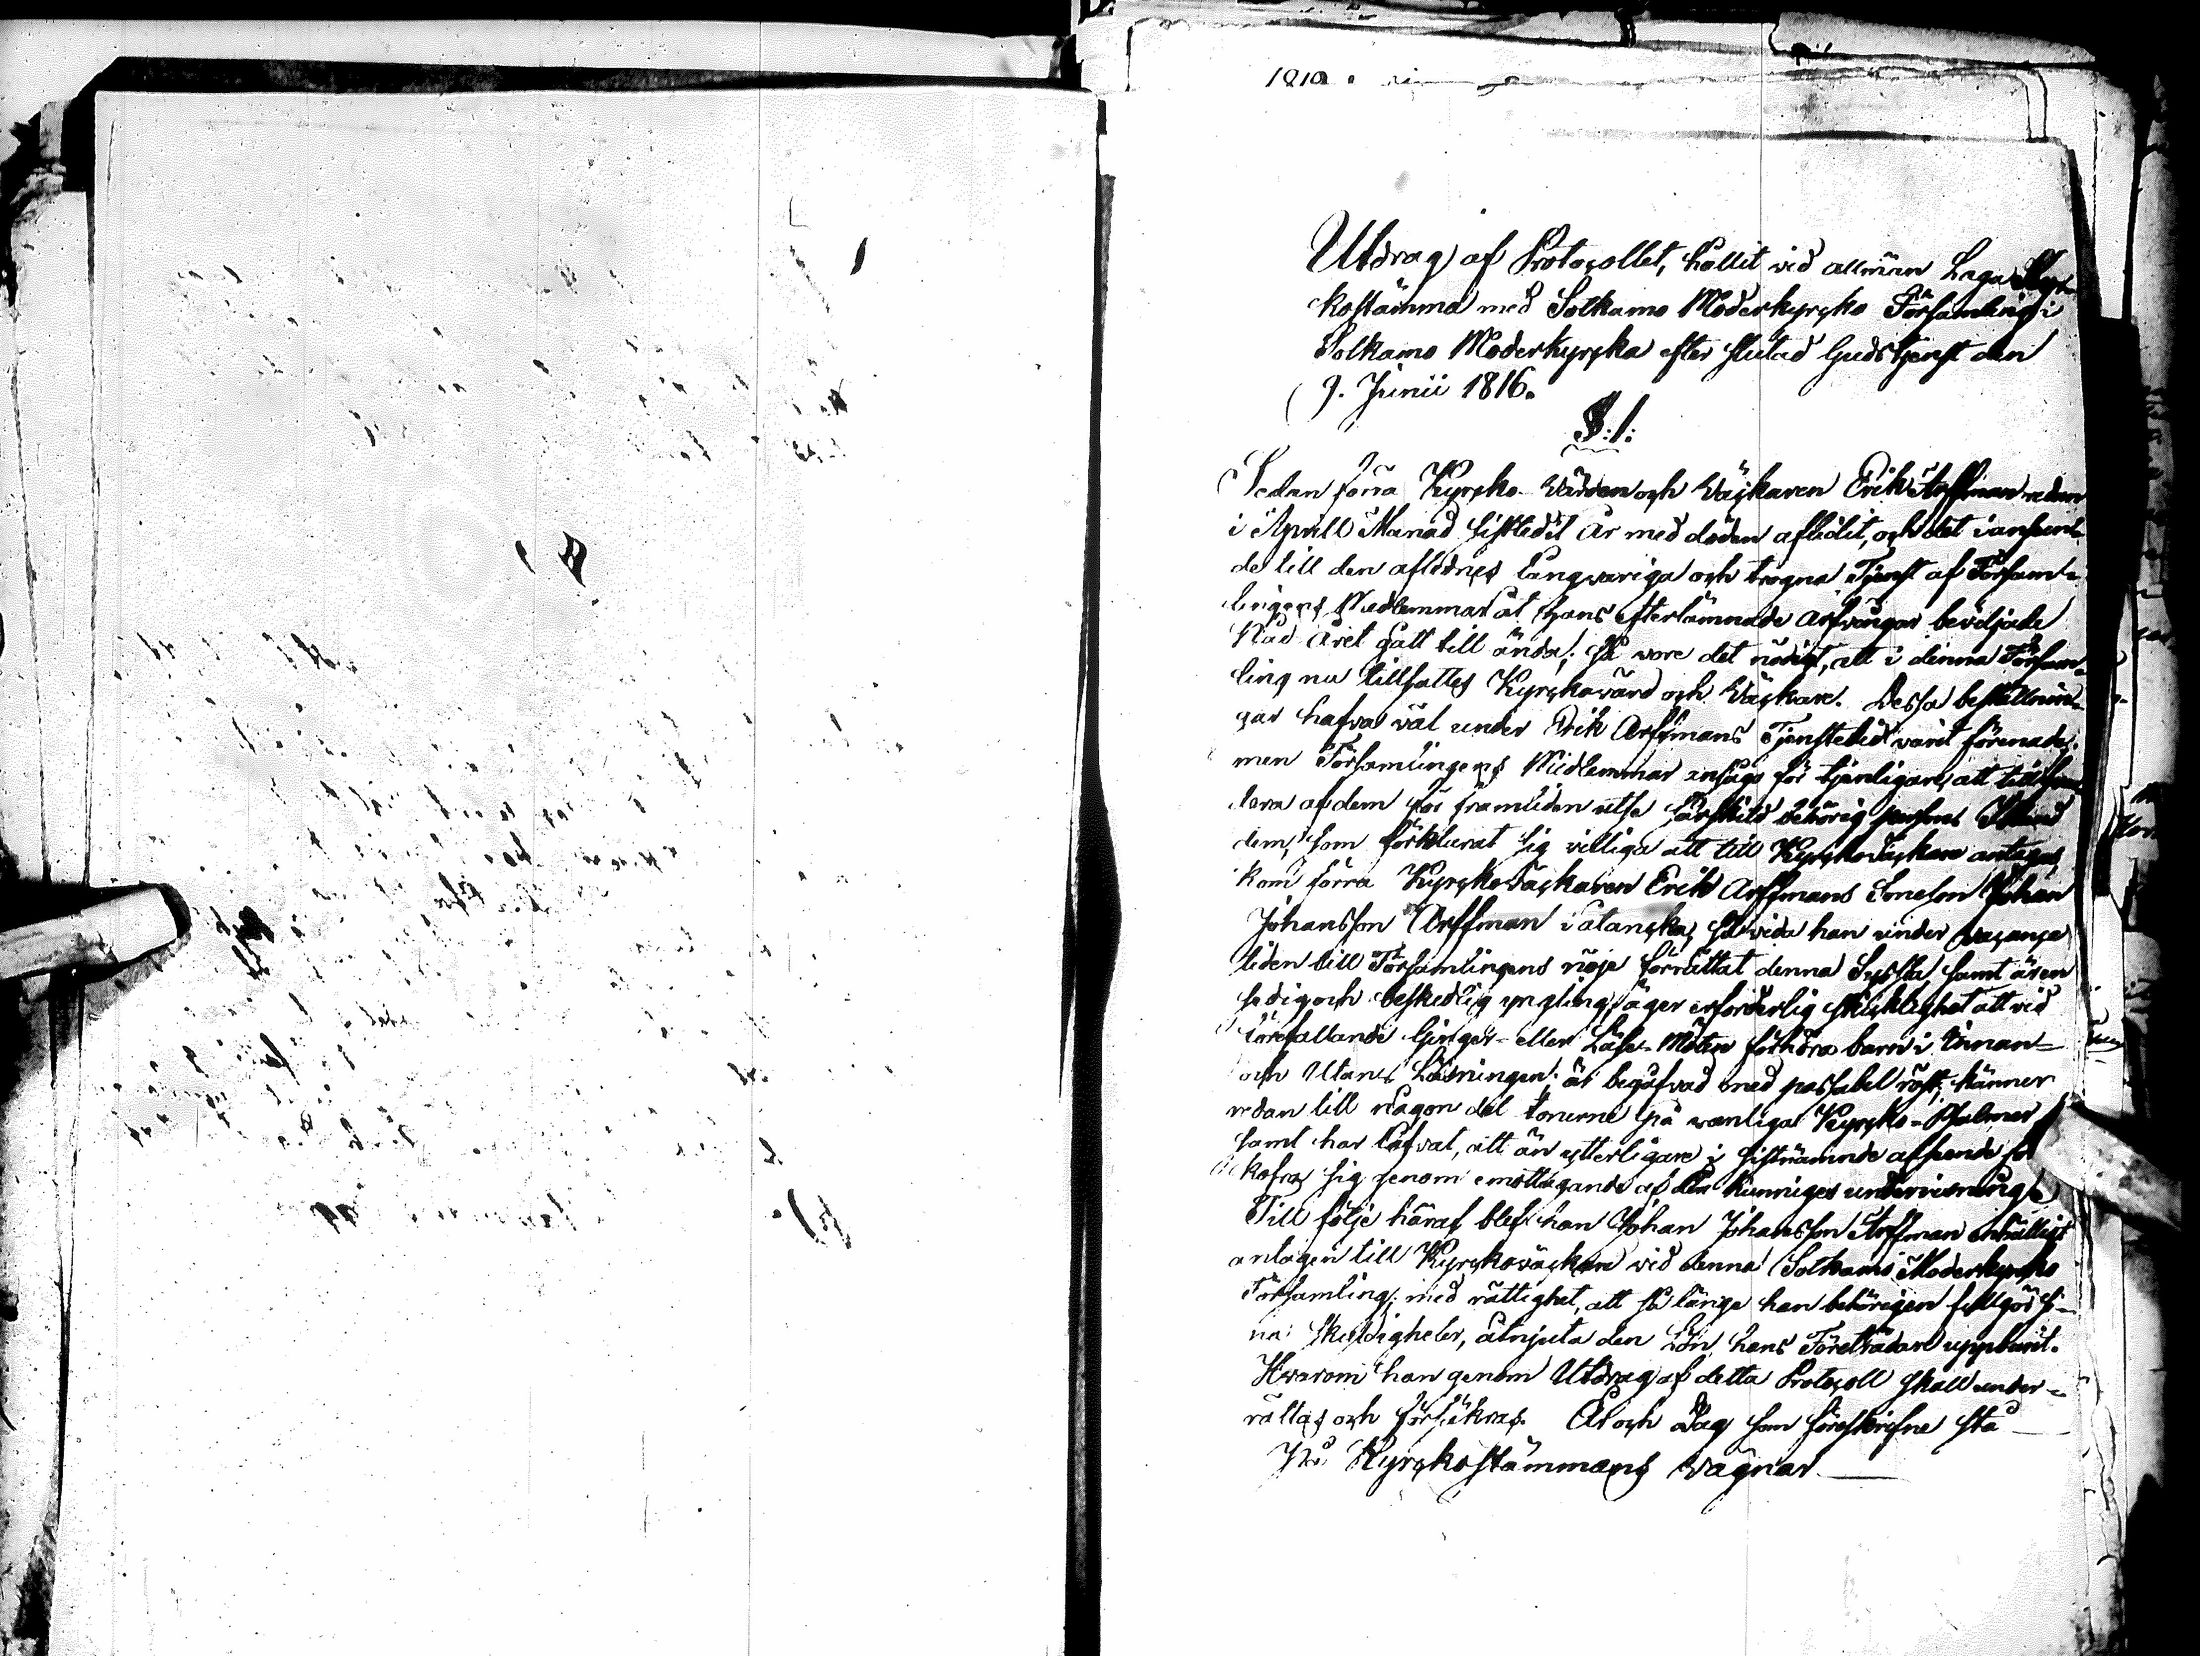 Utdrag af Protocollet, hållit vid allmän Laga Kyr-
kostämma med Sotkamo Moderkyrcko Församling i
Sotkamo Moderkyrcka efter slutad Gudstjenst den
9. Junii 1816.
§. 1.
Sedan förra Kyrcko-Värden och Väckaren Erik Arffman redan
i Aprill Månad sistledit År med döden aflidit, och det i anseen-
de till den aflednes långvariga och trogna Tjenst af Försam-
lingens Medlemmar åt hans efterlämnade Arfvingar beviljade
Nåd året gått till ända; så vore det nödigt, att i denna Försam-
ling nu tillsattes Kyrckovärd och Väckare. Dessa beställnin-
gar hafva väl under Erik Arffmans Tjenstetid varit förenade,
men Församlingens Medlemmar ansågo för tjenligare, att till
dera af dem för framtiden utse särskild behörig person. Ibland
dem, som förklarat sig villiga att till Kyrckoväckare antagas,
kom förra Kyrckoväckaren Erik Arffmans Soneson Johan
Johansson Arffman i åtancka, så vida han under vacance
tiden till Församlingens nöje förrättat denna Syssla, samt även
sedig och beskedlig yngling, äger erforderlig skicklighet att vid
förefallande Gingers- eller Läse-Möten förhöra barn i Innan-
och Utans Läsningen; är begåfvad med passabel röst; känner
redan till någon del tonerne på vanliga Kyrcko-Psalmer
samt har låfvat, att än ytterligare i sistnämnde afseende
kofra sig genom emottagande af den kunniges undervisning.
Till följe häraf blef han Johan Johansson Arffman enhälligt
antagen till Kyrckoväckare vid denna Sotkamo Moderkyrcko
Församling; med rättighet, att så länge han behörigen fullgör si-
na skuldigheter, åtnjuta den Lön, hans Företrädare uppburit.
Hvarom han genom Utdrag af detta Protocoll skall under-
rättas och försäkras. År och Dag som föreskrifne stå
På Kyrckostämmans vägnar